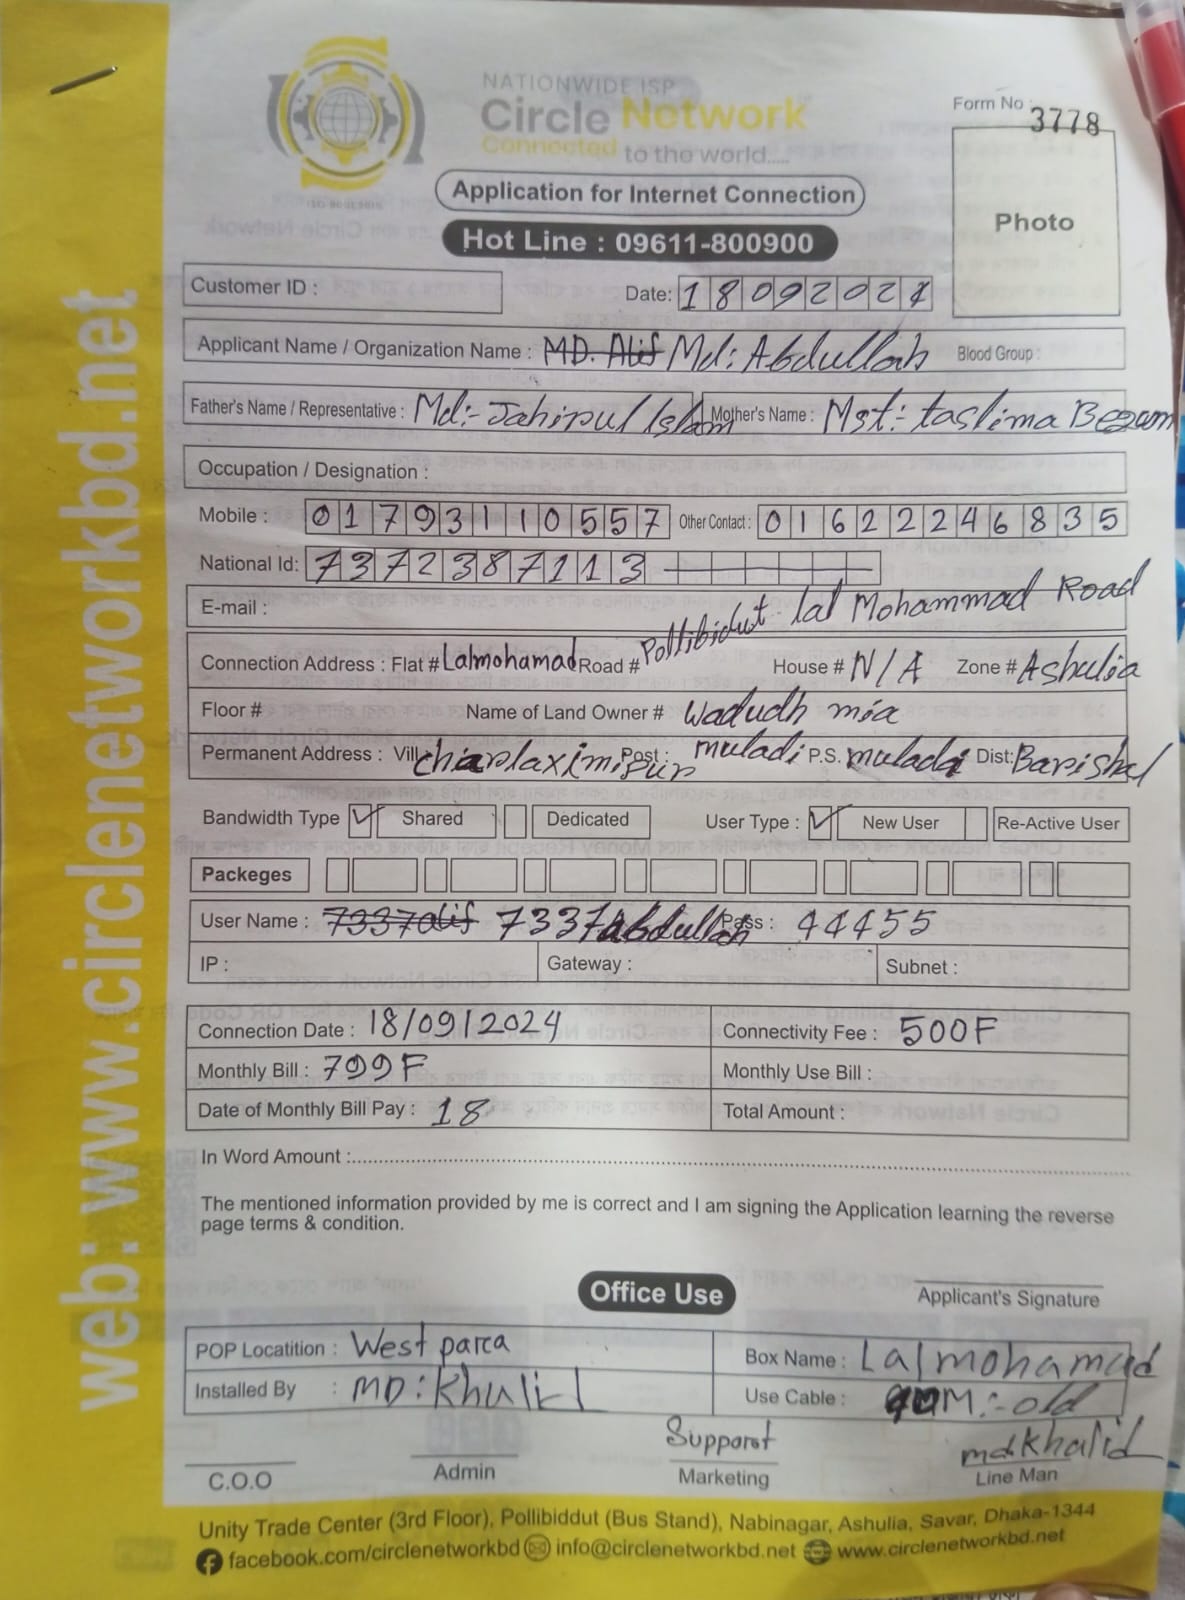 NATIONWIDE ISP
Circle Network
Connected to the world.....
Form No : 3778
Photo
Application for Internet Connection
Hot Line : 09611-800900
Customer ID :
Date: 18092024
Applicant Name / Organization Name : MD. Alif Md: Abdullah Blood Group :
Father's Name / Representative : Md:- Jahirul Islam Mother's Name : Mst:- taslima Begum
Occupation / Designation :
Mobile : 01793110557 Other Contact : 01622246835
National Id: 7372387113
E-mail :
Pollibidut lal Mohammad Road
Connection Address : Flat # Lalmohamad Road # House # N/A Zone # Ashulia
Floor # Name of Land Owner # Wadudh mia
Permanent Address : Vill charlaximipur Post : muladi P.S. muladi Dist: Barishal
Bandwidth Type Shared Dedicated User Type : New User Re-Active User
Packeges
User Name : 7337alif 7337abdullah Pass : 44455
IP : Gateway : Subnet :
Connection Date : 18/09/2024 Connectivity Fee : 500F
Monthly Bill : 799F Monthly Use Bill :
Date of Monthly Bill Pay : 18 Total Amount :
In Word Amount :
The mentioned information provided by me is correct and I am signing the Application learning the reverse
page terms & condition.
Office Use
Applicant's Signature
POP Locatition : West parca Box Name : Lalmohamad
Installed By : MD: Khalid Use Cable : M:- old
Supporot mdkhalid
C.O.O Admin Marketing Line Man
Unity Trade Center (3rd Floor), Pollibiddut (Bus Stand), Nabinagar, Ashulia, Savar, Dhaka-1344
facebook.com/circlenetworkbd info@circlenetworkbd.net www.circlenetworkbd.net
web: www.circlenetworkbd.net